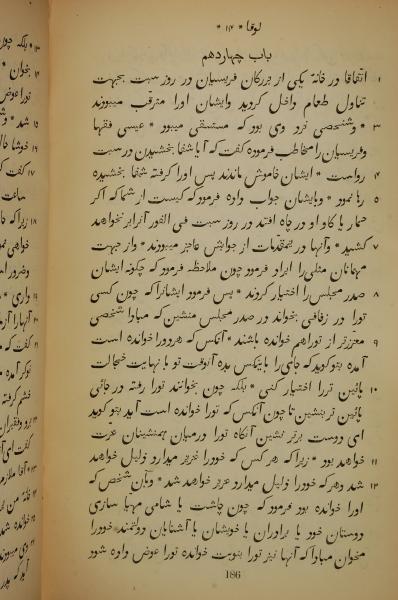 لوقا * ۱۴ *
باب چهاردهم
۱ اتفاقا در خانهٔ یکی از بزرکان فریسیان در روز سبت بجهت
تناول طعام داخل کردید وایشان اورا مترقب میبودند
* وشخصی نزد وی بود که مستسقی میبود * عیسی فقها ۳
وفریسیان را مخاطب فرموده کفت که آیا شفا بخشیدن در سبت
۴ رواست * ایشان خاموش ماندند پس اورا کرفته شفا بخشیده
۵ رها نمود * وبایشان جواب داده فرمود که کیست از شما که اکر
حمار یا کاو او در چاه افتد در روز سبت فی الفور آنرا بر نخواهد
۷ کشید * وآنها در مقدمات از جوابش عاجز میبودند * واز جهت
مهمانان مثلی را ایراد فرمود چون ملاحظه فرمود که چکونه ایشان
۸ صدر مجلس را اختیار کردند * پس فرمود ایشانرا که چون کسی
تورا در زفافی بخواند در صدر مجلس منشین که مبادا شخصی
۹ معززتر از تورا هم خوانده باشند * آنکس که هردورا خوانده است
آمده بتو کوید که جای را باینکس بده آنوقت تو با نهایت خجالت
۱۰ پائین تررا اختیار کنی * بلکه چون بخوانند تورا رفته در جائی
پائین تر بنشین تا چون آنکس که تورا خوانده است آید بتو کوید
ای دوست برتر نشین آنکاه تورا درمیان همنشینان عزت
۱۱ خواهد بود * زیرا که هر کس که خودرا عزیز میدارد ذلیل خواهد
۱۲ شد وهر که خودرا ذلیل میدارد عزیز خواهد شد * وبآن شخص که
اورا خوانده بود فرمود که چون چاشت یا شامی مهیا سازی
دوستان خود یا برادران یا خویشان یا آشنایان دولتمند خودرا
مخوان مبادا که آنها نیز تورا بنوبت خوانده تورا عوض داده شود
186